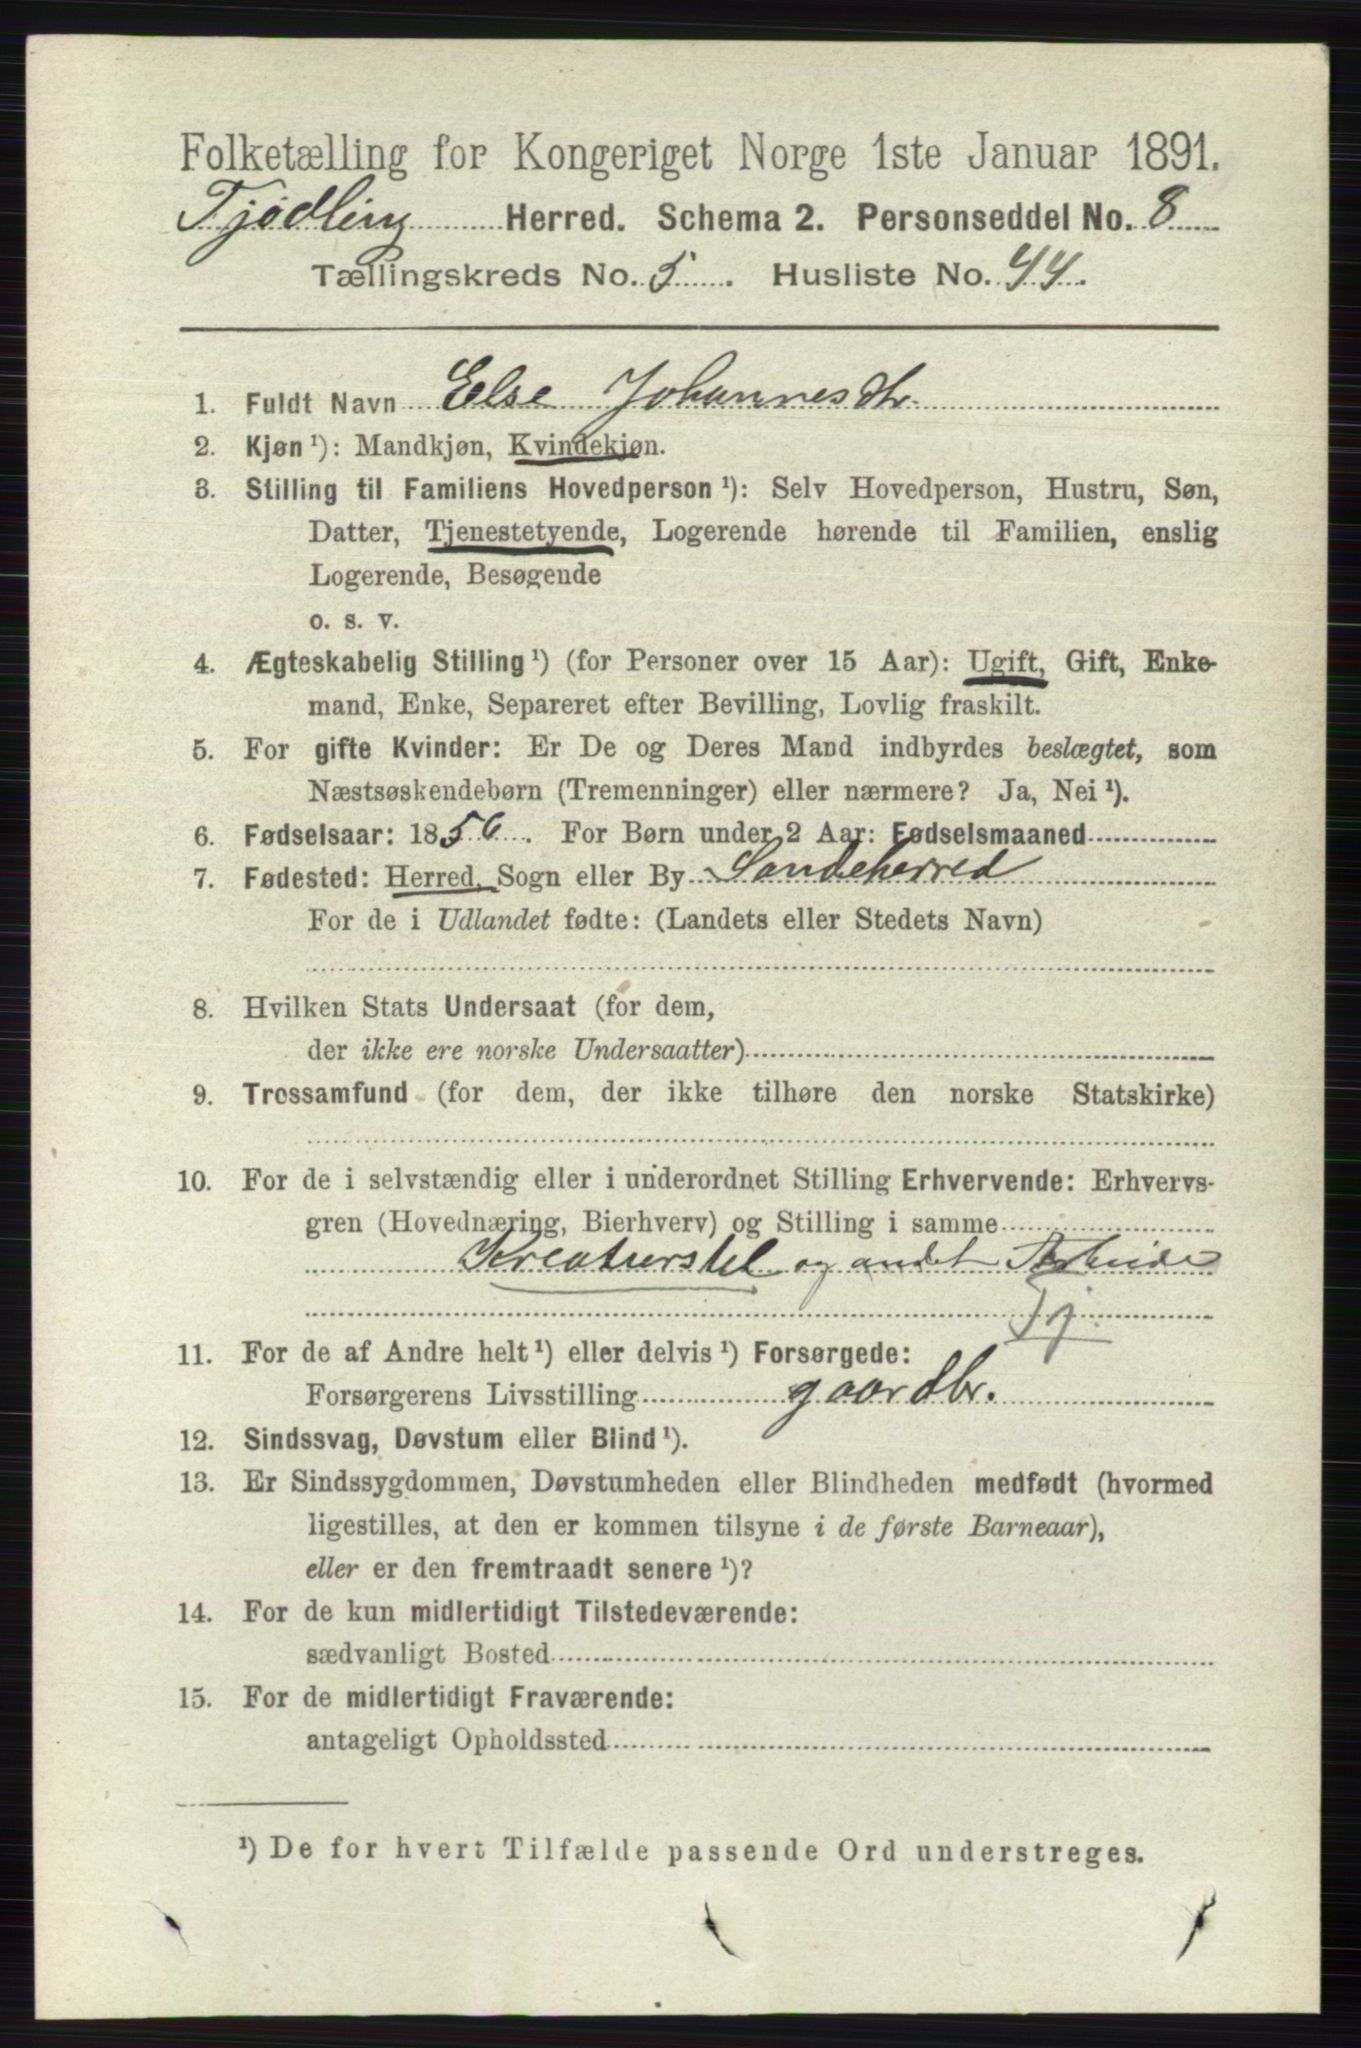 Folketælling for Kongeriget Norge 1ste Januar 1891.
Tjødling Herred. Schema 2. Personseddel No. 8
Tællingskreds No. 5. Husliste No. 44.
1. Fuldt Navn Else Johannesdtr.
2. Kjøn ¹): Mandkjøn, Kvindekjøn.
3. Stilling til Familiens Hovedperson ¹): Selv Hovedperson, Hustru, Søn,
Datter, Tjenestetyende, Logerende hørende til Familien, enslig
Logerende, Besøgende
o. s. v.
4. Ægteskabelig Stilling ¹) (for Personer over 15 Aar): Ugift, Gift, Enke-
mand, Enke, Separeret efter Bevilling, Lovlig fraskilt.
5. For gifte Kvinder: Er De og Deres Mand indbyrdes beslægtet, som
Næstsøskendebørn (Tremenninger) eller nærmere? Ja, Nei ¹).
6. Fødselsaar: 1856. For Børn under 2 Aar: Fødselsmaaned
7. Fødested: Herred, Sogn eller By Sandeherred
For de i Udlandet fødte: (Landets eller Stedets Navn)
8. Hvilken Stats Undersaat (for dem,
der ikke ere norske Undersaatter)
9. Trossamfund (for dem, der ikke tilhøre den norske Statskirke)
10. For de i selvstændig eller i underordnet Stilling Erhvervende: Erhvervs-
gren (Hovednæring, Bierhverv) og Stilling i samme
Kreaturstel og andet Arbeide
Tj.
11. For de af Andre helt ¹) eller delvis ¹) Forsørgede:
Forsørgerens Livsstilling gaardbr.
12. Sindssvag, Døvstum eller Blind ¹).
13. Er Sindssygdommen, Døvstumheden eller Blindheden medfødt (hvormed
ligestilles, at den er kommen tilsyne i de første Barneaar),
eller er den fremtraadt senere ¹)?
14. For de kun midlertidigt Tilstedeværende:
sædvanligt Bosted
15. For de midlertidigt Fraværende:
antageligt Opholdssted
¹) De for hvert Tilfælde passende Ord understreges.